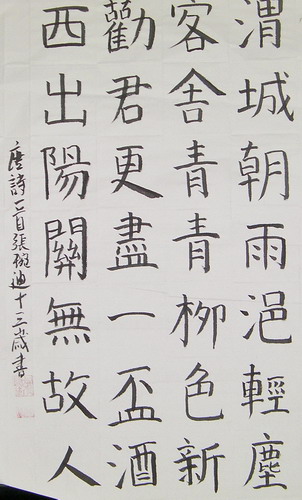 渭城朝雨浥輕塵
客舍青青柳色新
勸君更盡一盃酒
西出陽關無故人
唐詩一首張挺迪十三歲書